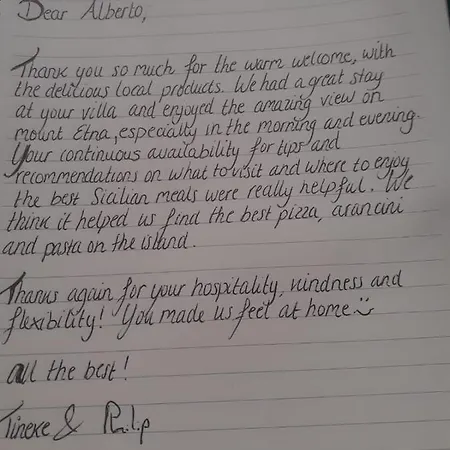 Dear Alberto,
Thank you so much for the warm welcome, with
the delicious local products. We had a great stay
at your villa and enjoyed the amazing view on
mount Etna, especially in the morning and evening.
Your continuous availability for tips and
recommendations on what to visit and where to enjoy
the best Sicilian meals were really helpful. We
think it helped us find the best pizza, arancini
and pasta on the island.
Thanks again for your hospitality, kindness and
flexibility! You made us feel at home :)
all the best!
Tineke & Philip